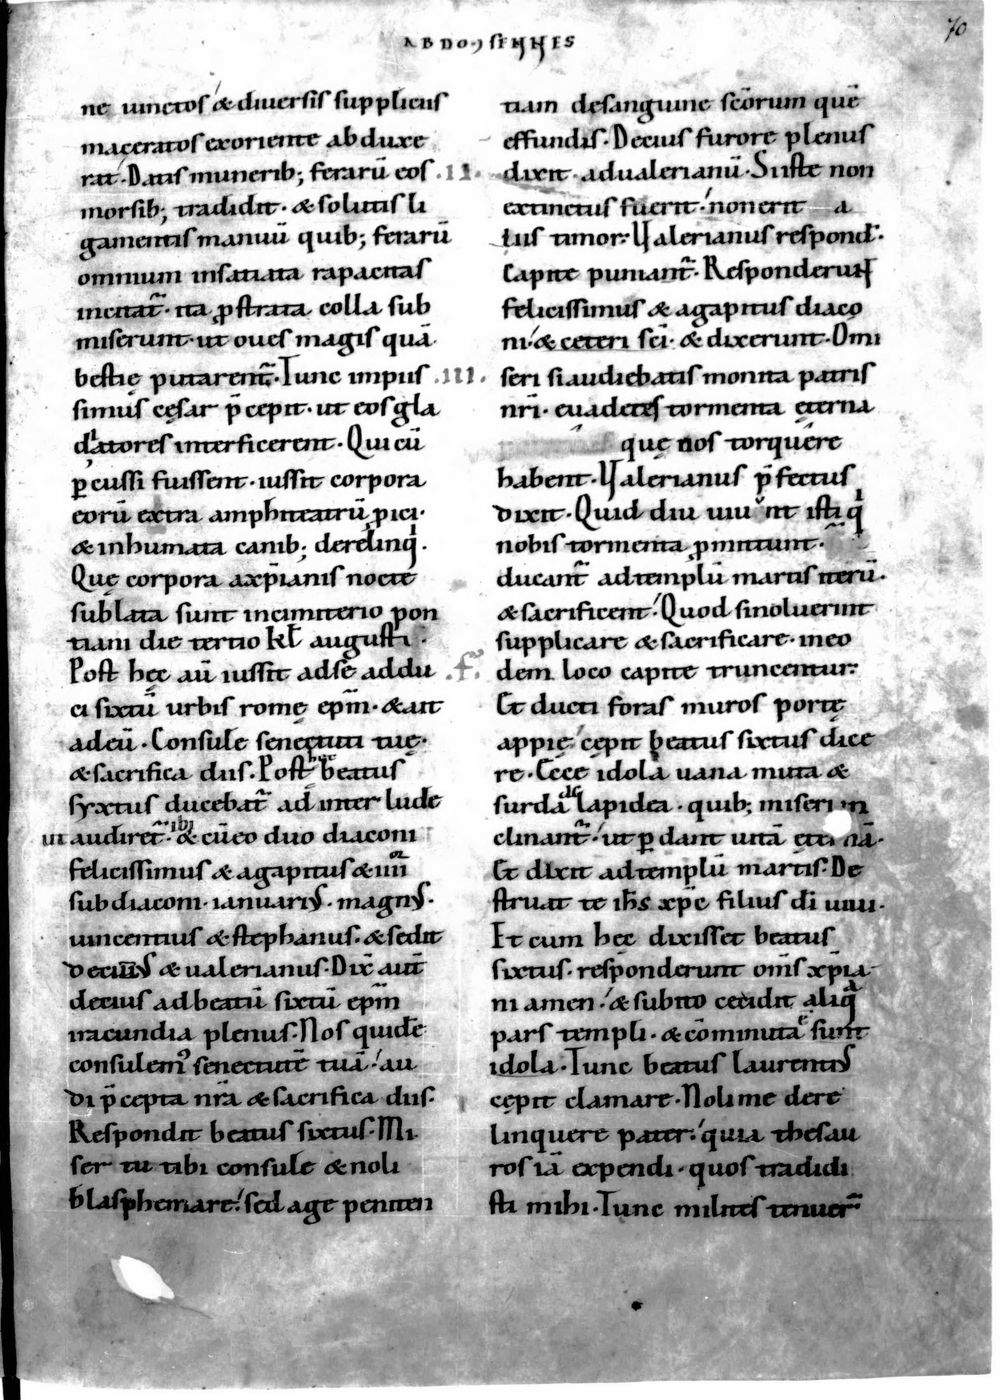 70
ABDO⁊ SENNES
ne uinctos & diuersis suppliciis
maceratos exoriente abduxe
rat. Datis munerib; ferarū eos .II.
morsib; tradidit. & solutis li
gamentis manuū quib; ferarū
omnium insatiata rapacitas
incitat̄. ita ꝓstrata colla sub
miserunt. ut oues magis quā
bestię putarent̄. Tunc impiis .III.
simus cęsar p̄cepit. ut eos gla
diatores interficerent. Qui cū
ꝑcussi fuissent. iussit corpora
eorū extra amphiteatrū ꝓici.
& inhumata canib; derelinqͥ.
Quę corpora axp̄ianis nocte
sublata sunt incimiterio pon
tiani die tertio kł augusti.
Post hęc aū iussit adse addu .f.
ci sixtū urbis romę ep̄m. & ait
adeū. Consule senectuti tuę.
& sacrifica diis. Post hęc beatus
syxtus ducebat̄ ad inter lude
ut audiret̄. ibi & cū eo duo diaconi
felicissimus & agapitus & iiiior
subdiaconi. ianuariꝰ. magnꝰ.
uincentius & stephanus. & sedit
deciꝰ & ualerianus. Dix̄ aut̄
decius adbeatū sixtū ep̄m
iracundia plenus. Nos quidē
consulemꝰ senectutē tuā. au
di p̄cepta nr̄a & sacrifica diis.
Respondit beatus sixtus. Mi
ser tu tibi consule & noli
blasphemare. sed age peniten
tiam desanguine sc̄orum quē
effundis. Decius furore plenus
dixit. adualerianū. Si iste non
extinctus fuerit. non erit a
lius timor. Ualerianus respond̄.
Capite puniant̄. Responderunt
felicissimus & agapitus diaco
ni. & ceteri sc̄i. & dixerunt. O mi
seri si audiebatis monita patris
nr̄i. euadetes tormenta ęterna
que nos torquere
habent. Ualerianus p̄fectus
dixit. Quid diu uiuunt isti qͥ
nobis tormenta ꝓmittunt.
ducant̄ adtemplū martis iterū.
& sacrificent. Quod si noluerint
supplicare & sacrificare. ineo
dem loco capite truncentur.
Et ducti foras muros portę
appię. cępit beatus sixtus dice
re. Ecce idola uana muta &
surda & lapidea. quib; miseri in
clinant̄. ut ꝑdant uitā ęternā.
Et dixit adtemplū martis. De
struat te ih̄s xp̄c filius dī uiui.
Et cum hęc dixisset beatus
sixtus. responderunt om̄s xp̄ia
ni amen. & subito cecidit aliqͣ
pars templi. & cōminuta sunt
idola. Tunc beatus laurentiꝰ
cępit clamare. Noli me dere
linquere pater. quia thesau
ros iā expendi. quos tradidi
sti mihi. Tunc milites tenuer̄